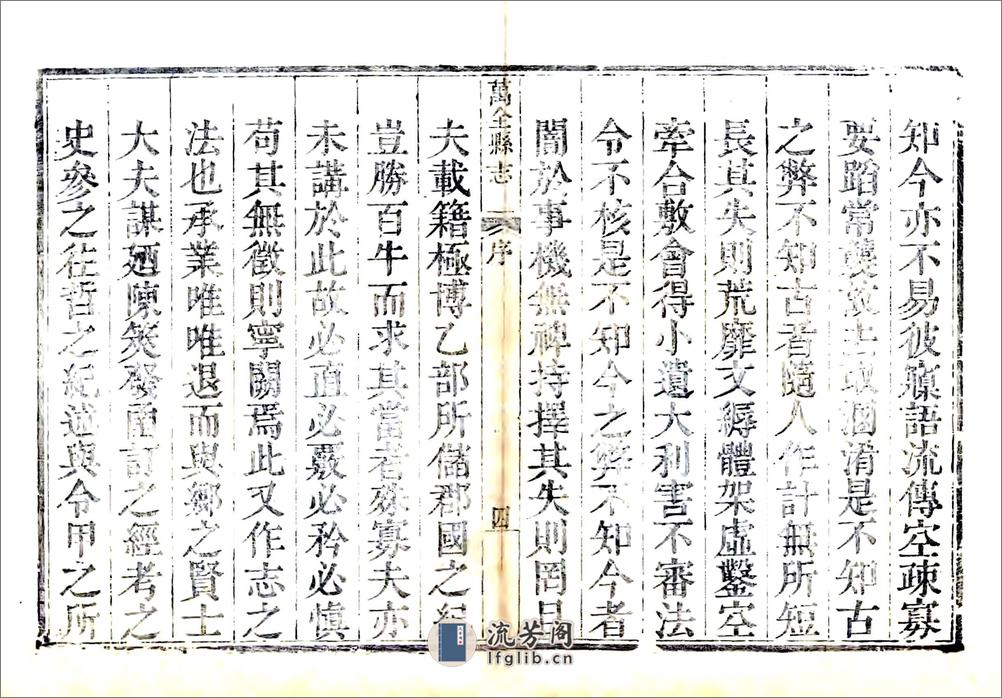 知今亦不易彼寱語流傳空疎寡
要蹈常襲故去取溷淆是不知古
之弊不知古者隨人作計無所短
長其失則荒靡文縟體架虛鑿空
牽合敷會得小遺大利害不審法
令不核是不知今之弊不知今者
闇於事機無裨持擇其失則罔
萬全縣志 序 四
夫載籍極博乙部所儲郡國之紀
豈勝百牛而求其當者殊寡夫亦
未講於此故必直必覈必矜必慎
苟其無徵則寧闕焉此又作志之
法也承業唯唯退而與鄉之賢士
大夫謀廼陳筴發凾訂之經考之
史參之往哲之紀述與令甲之所
流芳阁
lfglib.cn